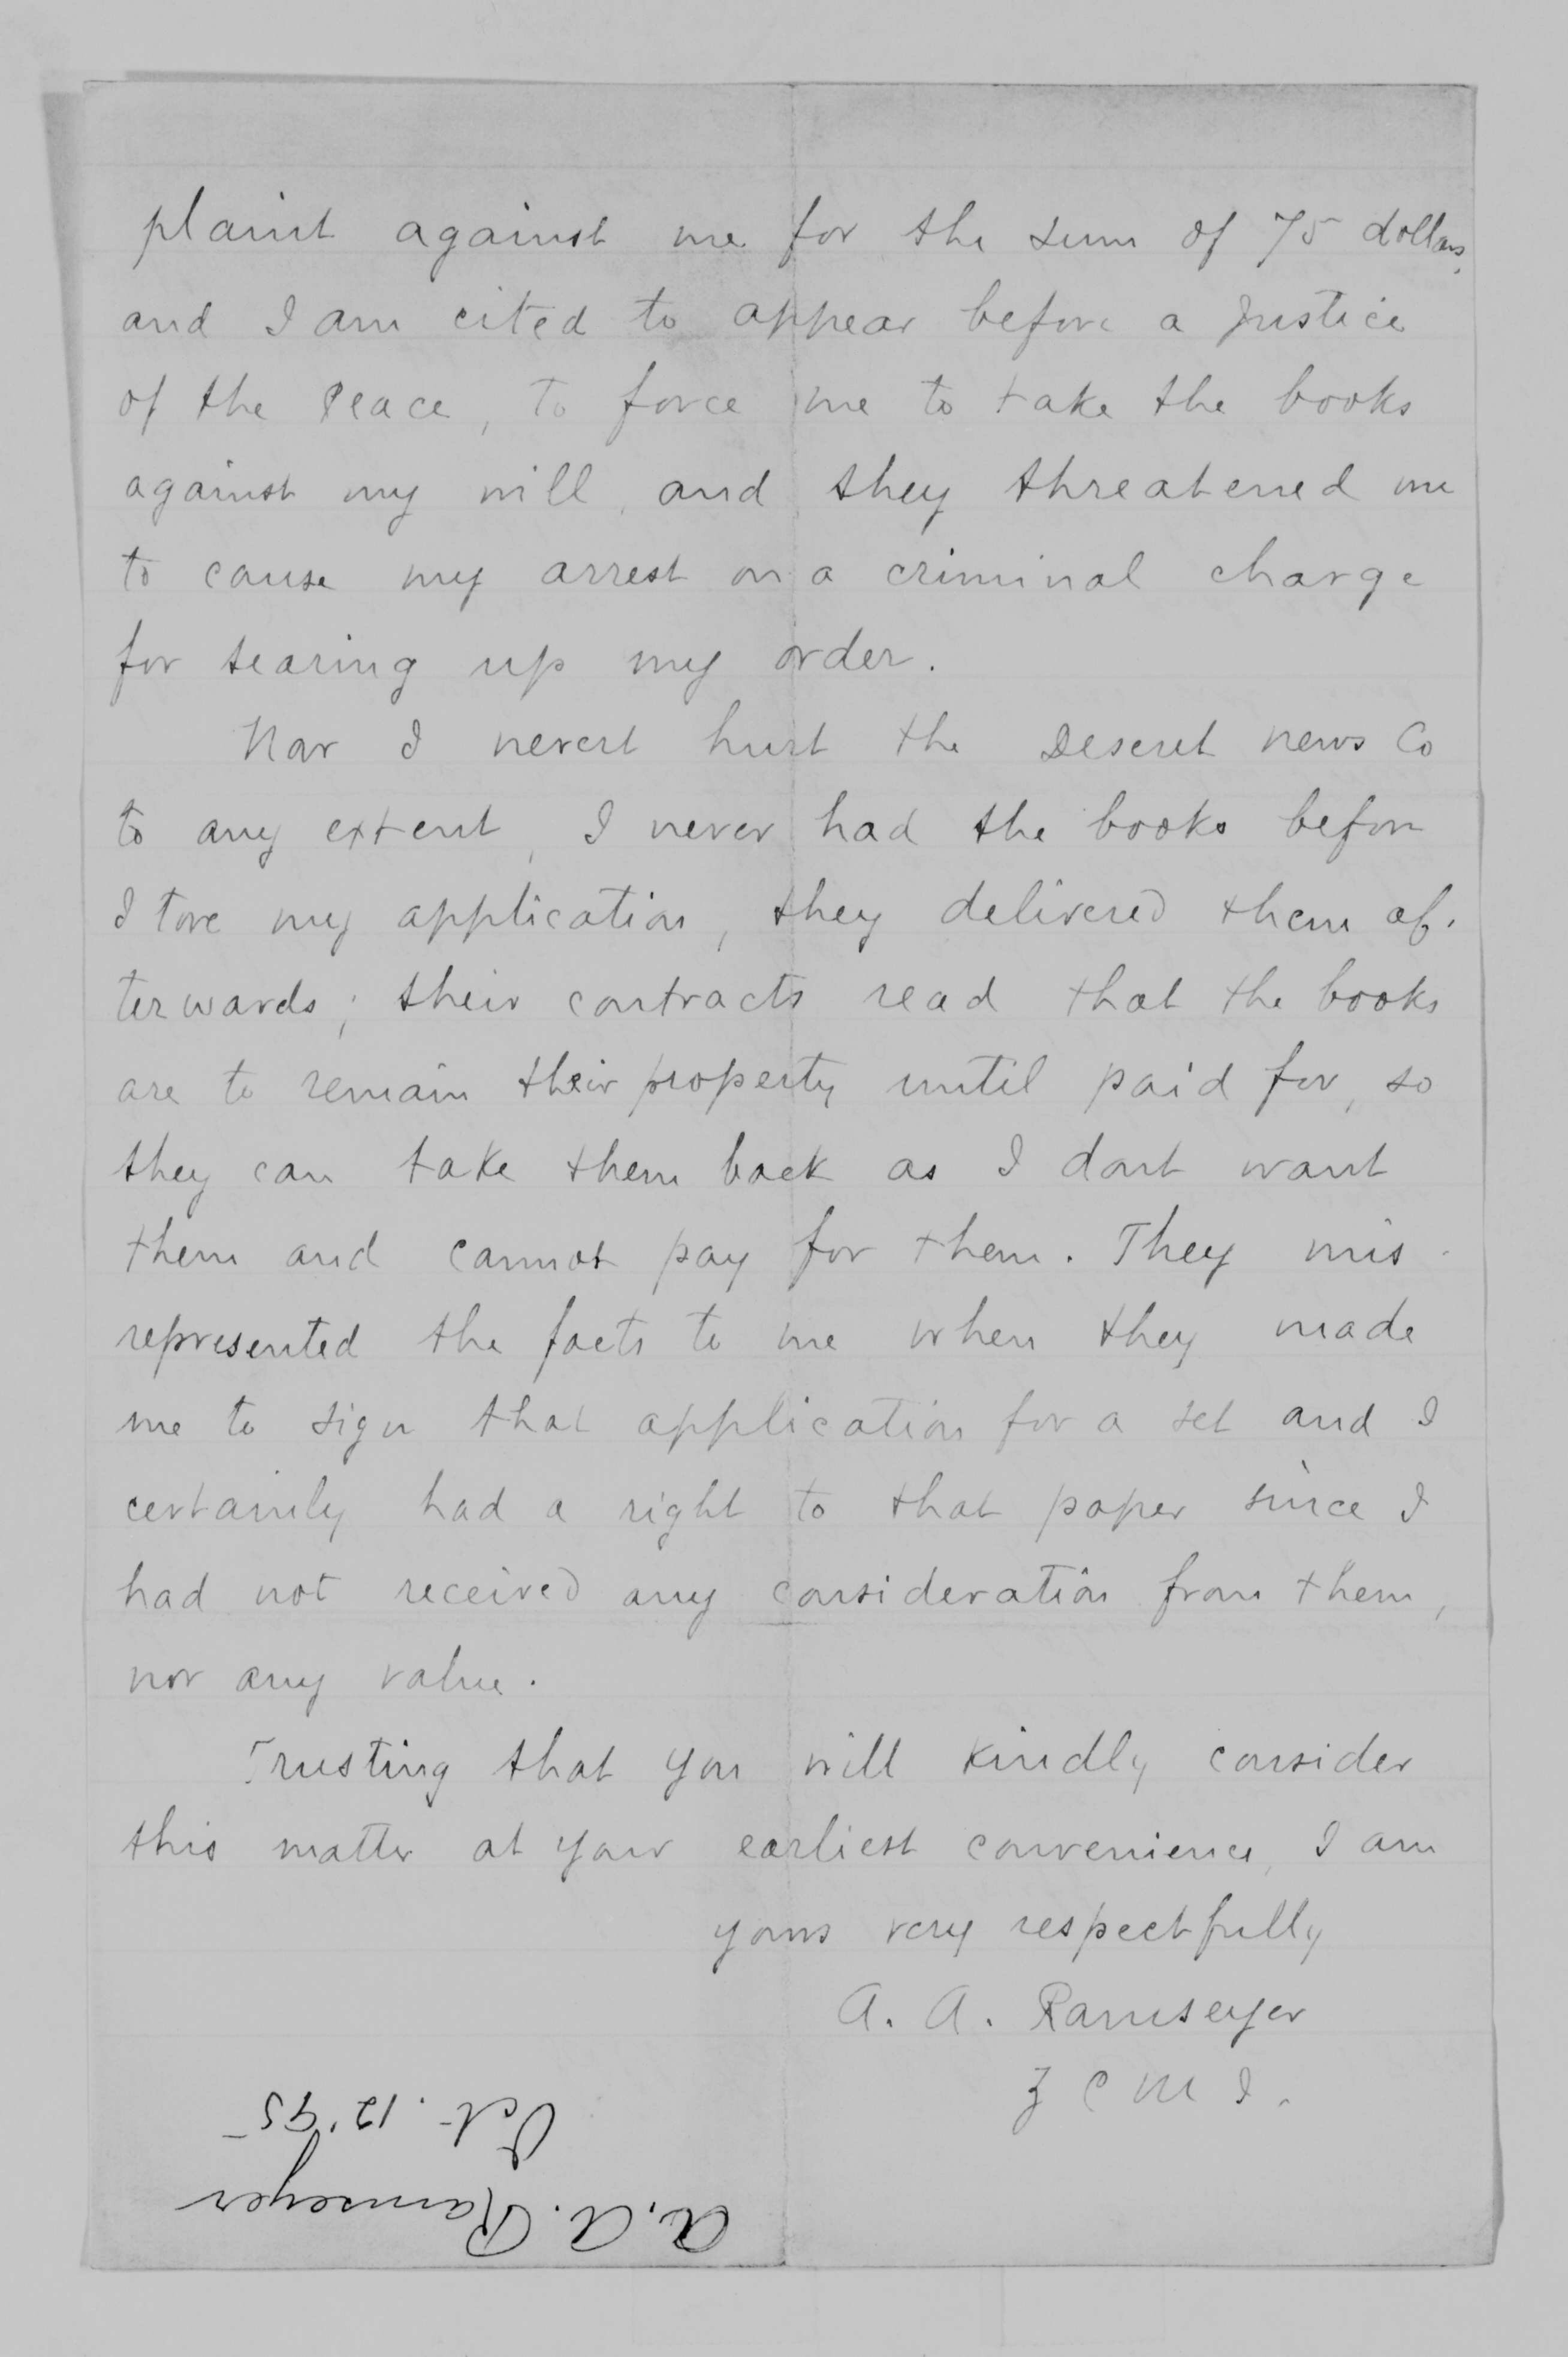 plaint against me for the sum of 75 dollars,
and I am cited to appear before a Justice
of the Peace, to force me to take the books
against my will, and they threatened me
to cause my arrest on a criminal charge
for tearing up my order.
Nor I never hurt the Deseret News Co
to any extent, I never had the books before
I tore my application, they delivered them af-
terwards; their contracts read that the books
are to remain their property until paid for, so
they can take them back as I dont want
them and cannot pay for them. They mis-
represented the facts to me when they made
me to sign that application for a set and I
certainly had a right to that paper since I
had not received any consideration from them,
nor any value.
Trusting that you will kindly consider
this matter at your earliest convenience, I am
yours very respectfully
A. A. Ramseyer
Z C M I.
A. A. Ramseyer
Oct. 12 '95